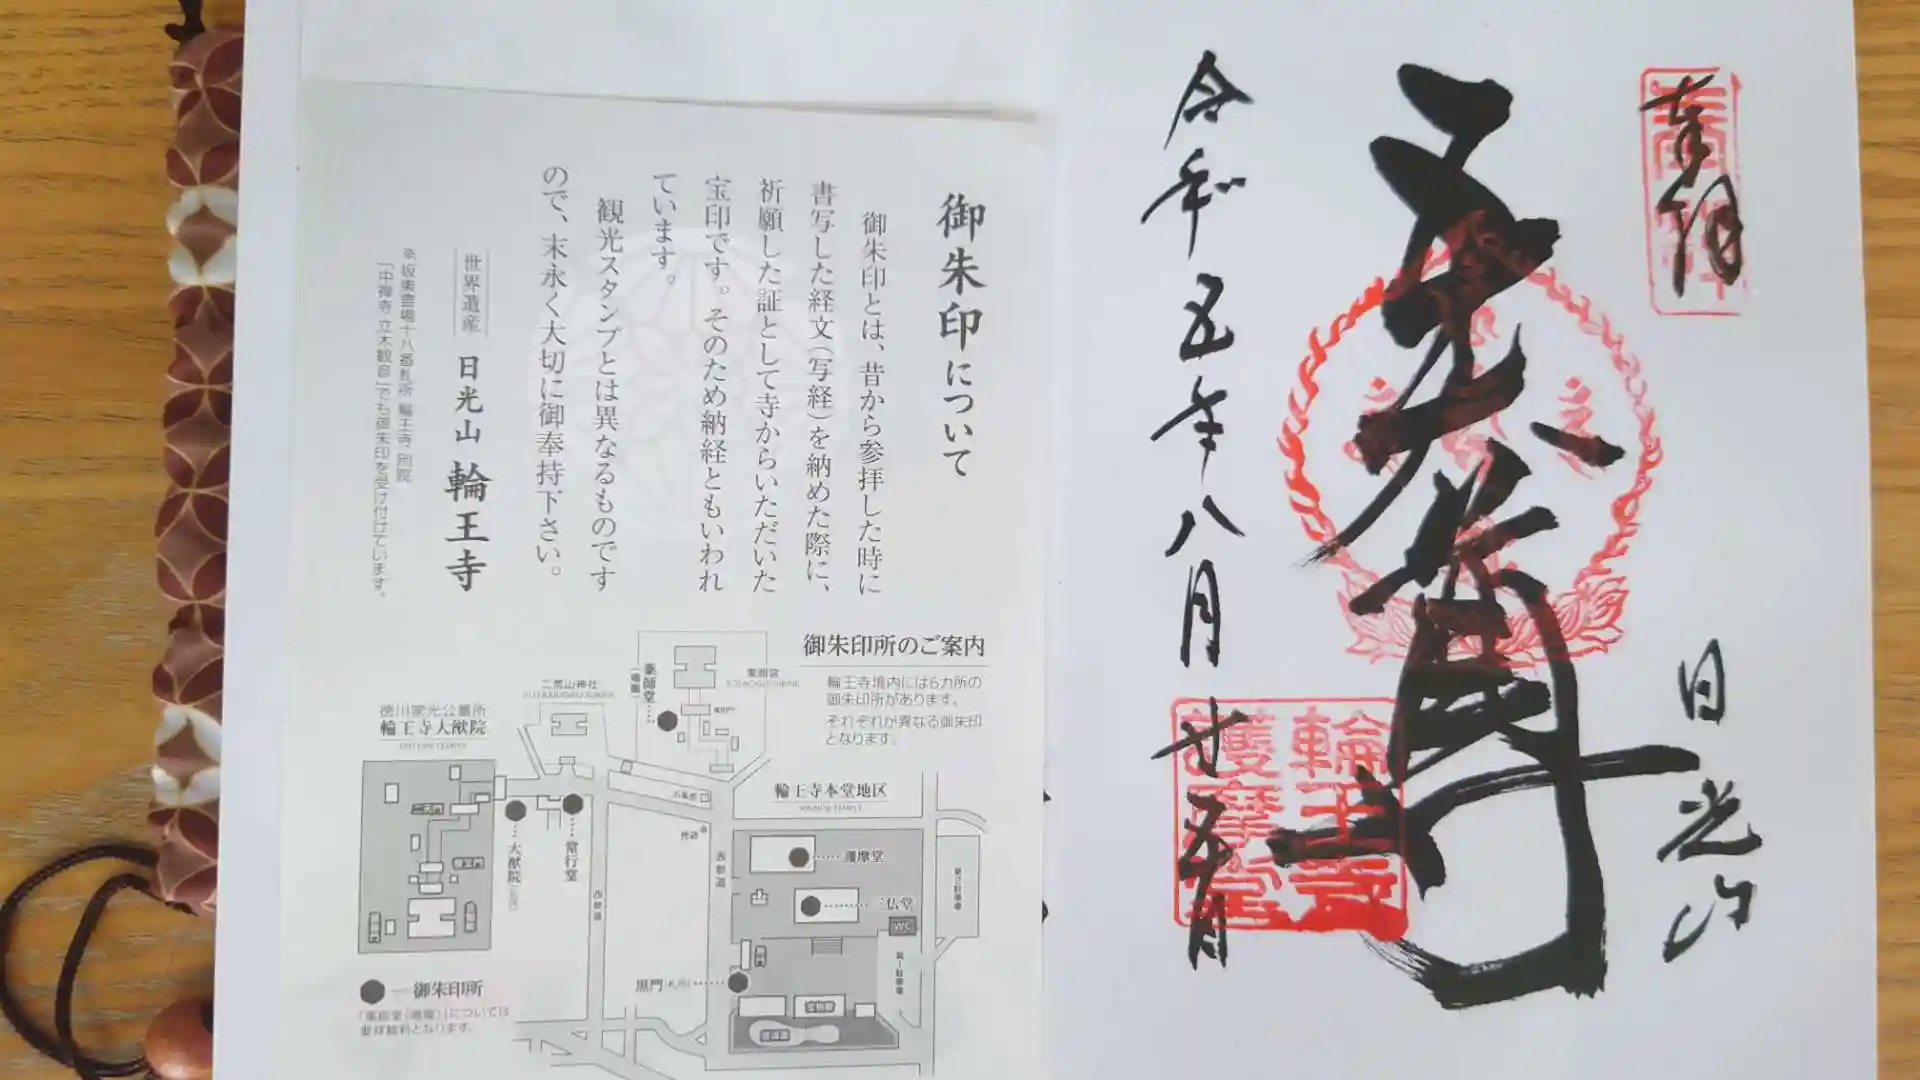 奉拝
日光山
五大尊
輪王寺
護摩堂
令和五年八月廿五日
御朱印について
御朱印とは、昔から参拝した時に
書写した経文(写経)を納めた際に、
祈願した証として寺からいただいた
宝印です。そのため納経ともいわれ
ています。
観光スタンプとは異なるものです
ので、末永く大切に御奉持下さい。
世界遺産 日光山 輪王寺
※坂東霊場十八番札所 輪王寺 別院
「中禅寺 立木観音」でも御朱印を受け付けています。
御朱印所のご案内
輪王寺境内には6カ所の
御朱印所があります。
それぞれが異なる御朱印
となります。
薬師堂
(鳴龍)
東照宮
TOSHOGU SHRINE
二荒山神社
FUTARASAN SHRINE
徳川家光公墓所
輪王寺大猷院
TAIYUIN TEMPLE
大猷院
常行堂
西参道
表参道
輪王寺本堂地区
RINNOJI TEMPLE
護摩堂
三仏堂
WC
第2駐車場
第1駐車場
黒門(札所)
宝物殿
●―御朱印所
「薬師堂(鳴龍)」については
要拝観料となります。